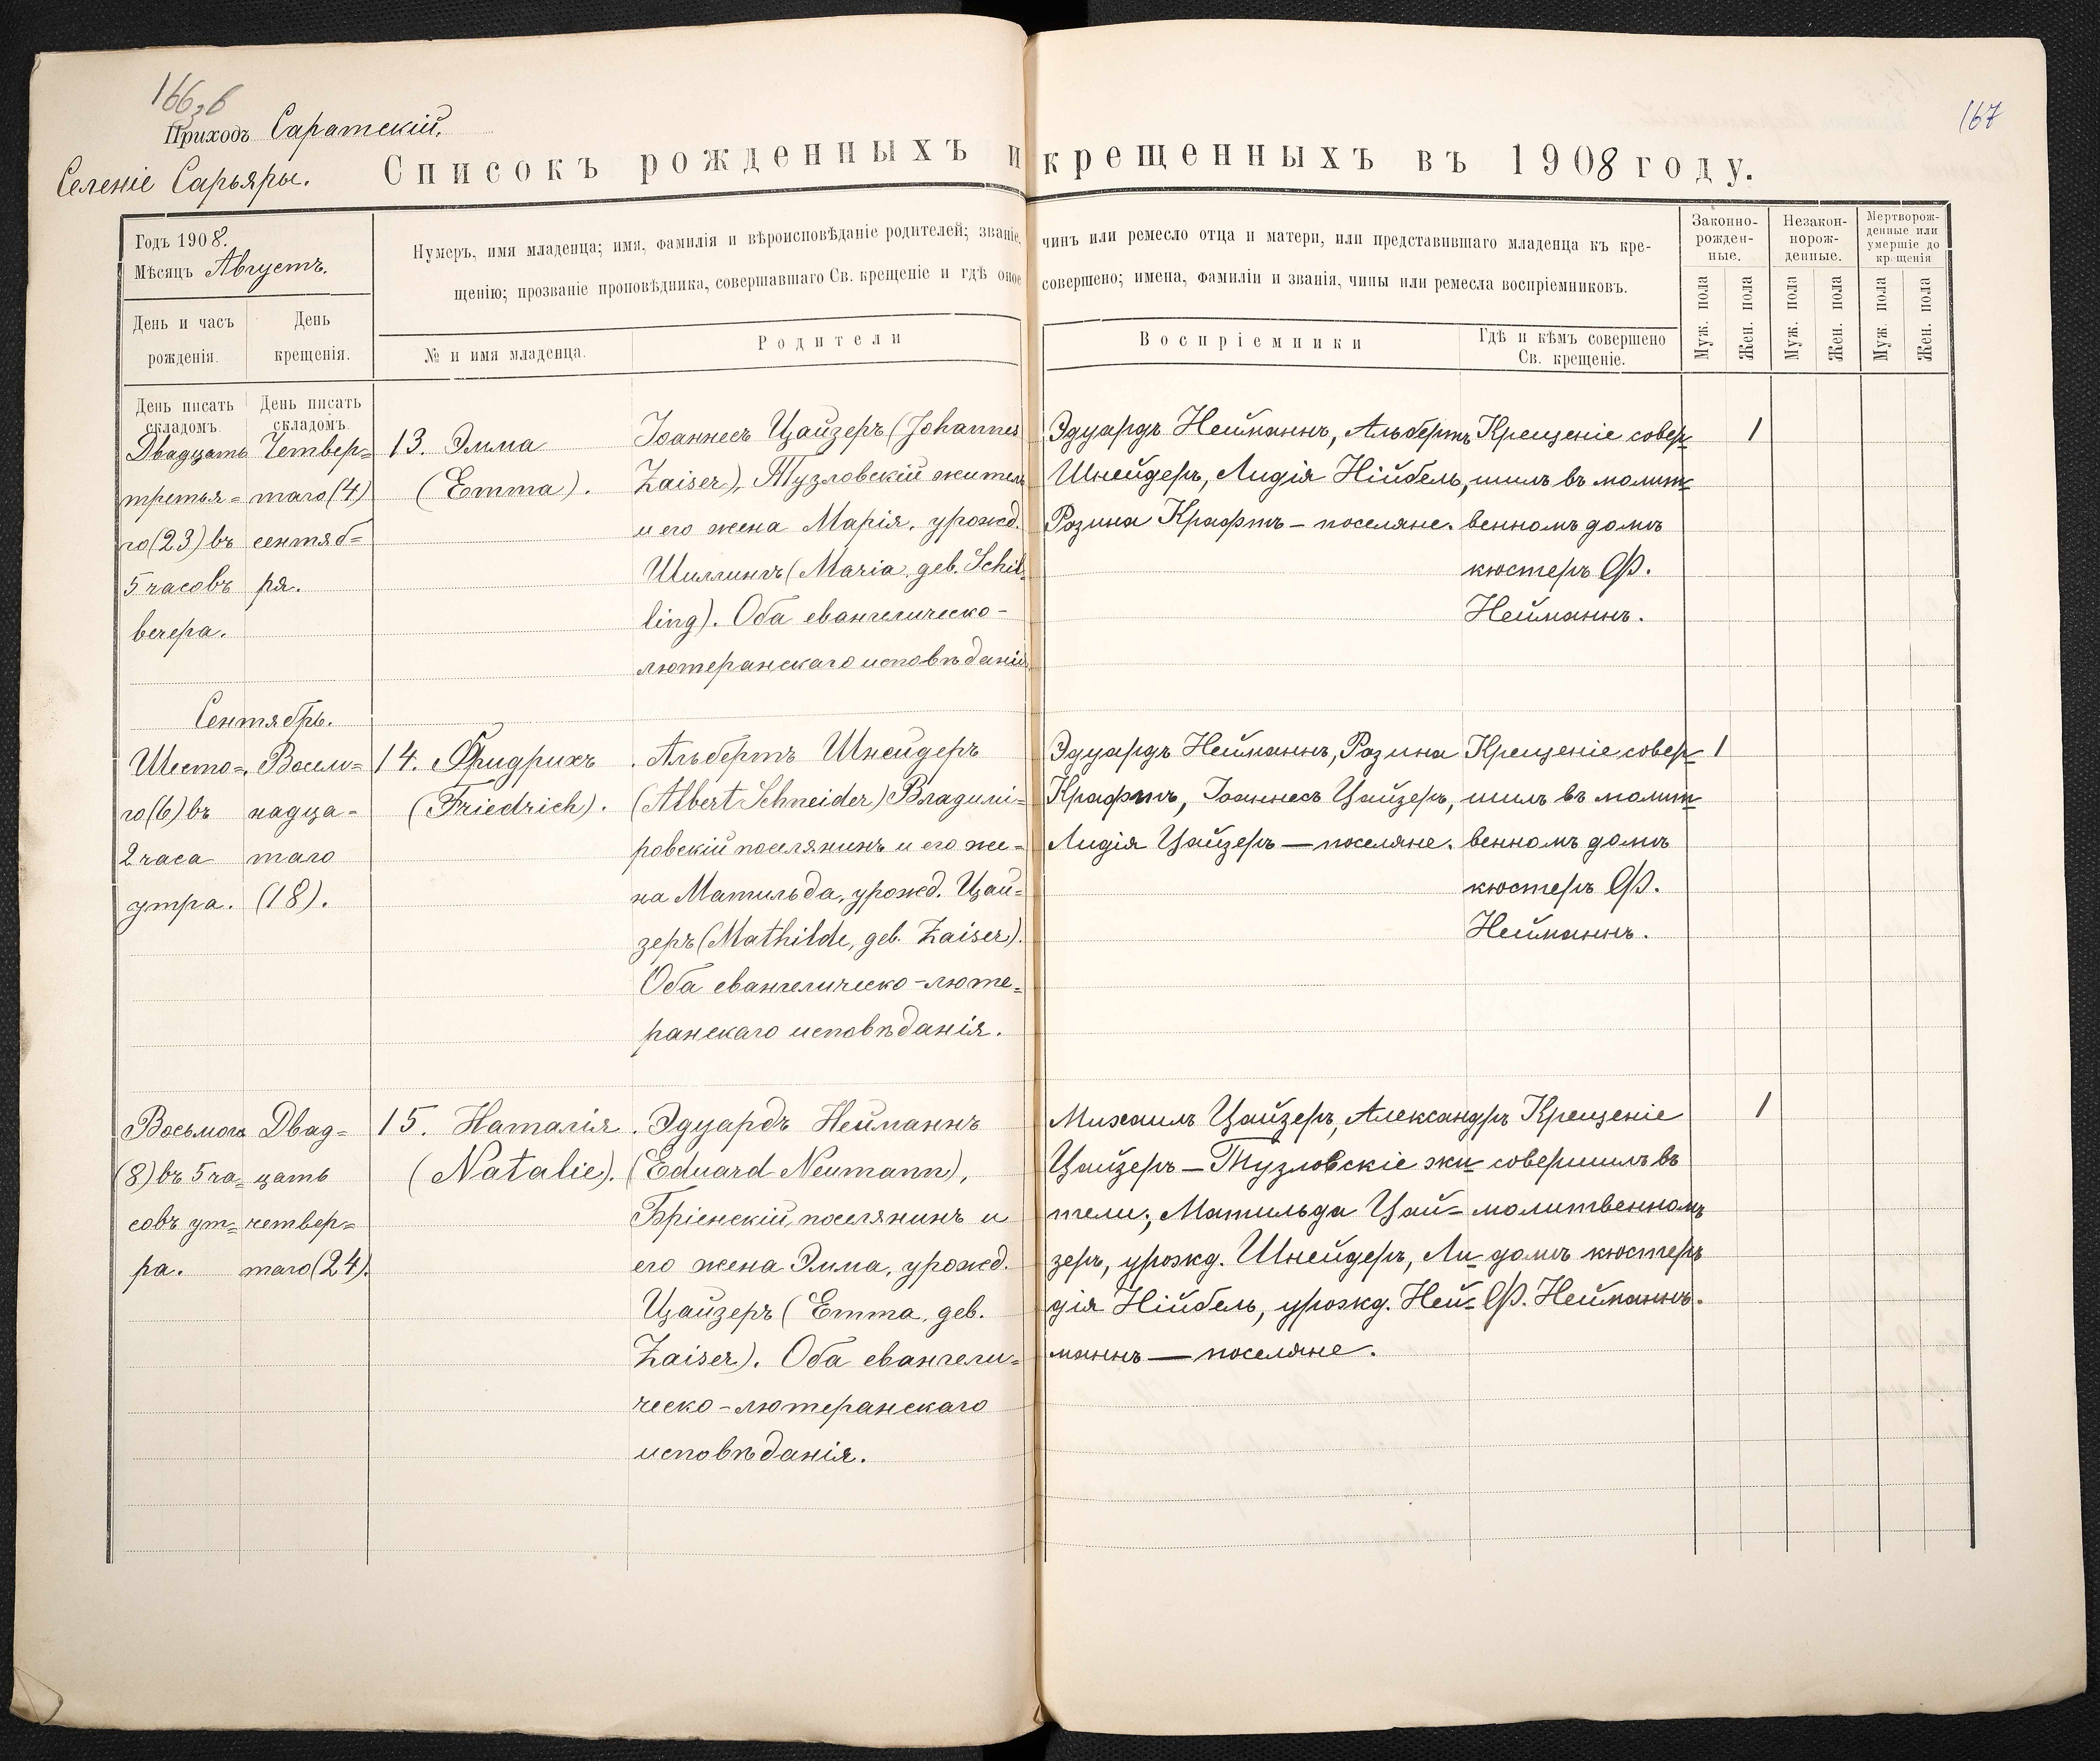 166зв
Приходъ Саратскій.
Селеніе Сарьяры.
167
Списокъ рожденныхъ и крещенныхъ въ 1908 году.
Годъ 1908.
Мѣсяцъ Августъ.
День и часъ
рожденія.
День
крещенія.
Нумеръ, имя младенца; имя, фамилія и вѣроисповѣданіе родителей; званіе, чинъ или ремесло отца и матери, или представившаго младенца къ кре-
щенію; прозваніе проповѣдника, совершавшаго Св. крещеніе и гдѣ оное совершено; имена, фамиліи и званія, чины или ремесла воспріемниковъ.
№ и имя младенца.
Родители
Воспріемники
Гдѣ и кѣмъ совершено
Св. крещеніе.
Законно-
рожден-
ные.
Незакон-
норож-
денные.
Мертворож-
денные или
умершіе до
крещенія
Муж. пола
Жен. пола
Муж. пола
Жен. пола
Муж. пола
Жен. пола
День писать
складомъ.
День писать
складомъ.
Двадцать
третья-
го (23) въ
5 часовъ
вечера.
Четвер-
таго (4)
сентяб-
ря.
13. Эмма
(Emma).
Іоаннесъ Цайзеръ (Johannes
Zaiser), Тузловскій житель
и его жена Марія, урожд.
Шиллингъ (Maria, geb. Schil-
ling). Оба евангелическо-
лютеранскаго исповѣданія.
Эдуардъ Нейманнъ, Альбертъ
Шнейдеръ, Лидія Нійбель,
Розина Крафтъ – поселяне.
Крещеніе совер-
шилъ въ молит-
венномъ домѣ
кюстеръ Ф.
Нейманнъ.
1
Сентябрь.
Шесто-
го (6) въ
2 часа
утра.
Восем-
надца-
таго
(18).
14. Фридрихъ
(Friedrich).
Альбертъ Шнейдеръ
(Albert Schneider) Владимі-
ровскій поселянинъ и его же-
на Матильда, урожд. Цай-
зеръ (Mathilde, geb. Zaiser).
Оба евангелическо-люте-
ранскаго исповѣданія.
Эдуардъ Нейманнъ, Розина
Крафтъ, Іоаннесъ Цайзеръ,
Лидія Цайзеръ — поселяне.
Крещеніе совер-
шилъ въ молит-
венномъ домѣ
кюстеръ Ф.
Нейманнъ.
1
Восьмого
(8) въ 5 ча-
совъ ут-
ра.
Двад-
цать
четвер-
таго (24).
15. Наталія
(Natalie).
Эдуардъ Нейманнъ
(Eduard Neumann),
Бріенскій поселянинъ и
его жена Эмма, урожд.
Цайзеръ (Emma, geb.
Zaiser). Оба евангели-
ческо-лютеранскаго
исповѣданія.
Михаилъ Цайзеръ, Александръ
Цайзеръ – Тузловскіе жи-
тели; Матильда Цай-
зеръ, урожд. Шнейдеръ, Ли-
дія Нійбель, урожд. Ней-
маннъ — поселяне.
Крещеніе
совершилъ въ
молитвенномъ
домѣ кюстеръ
Ф. Нейманнъ.
1